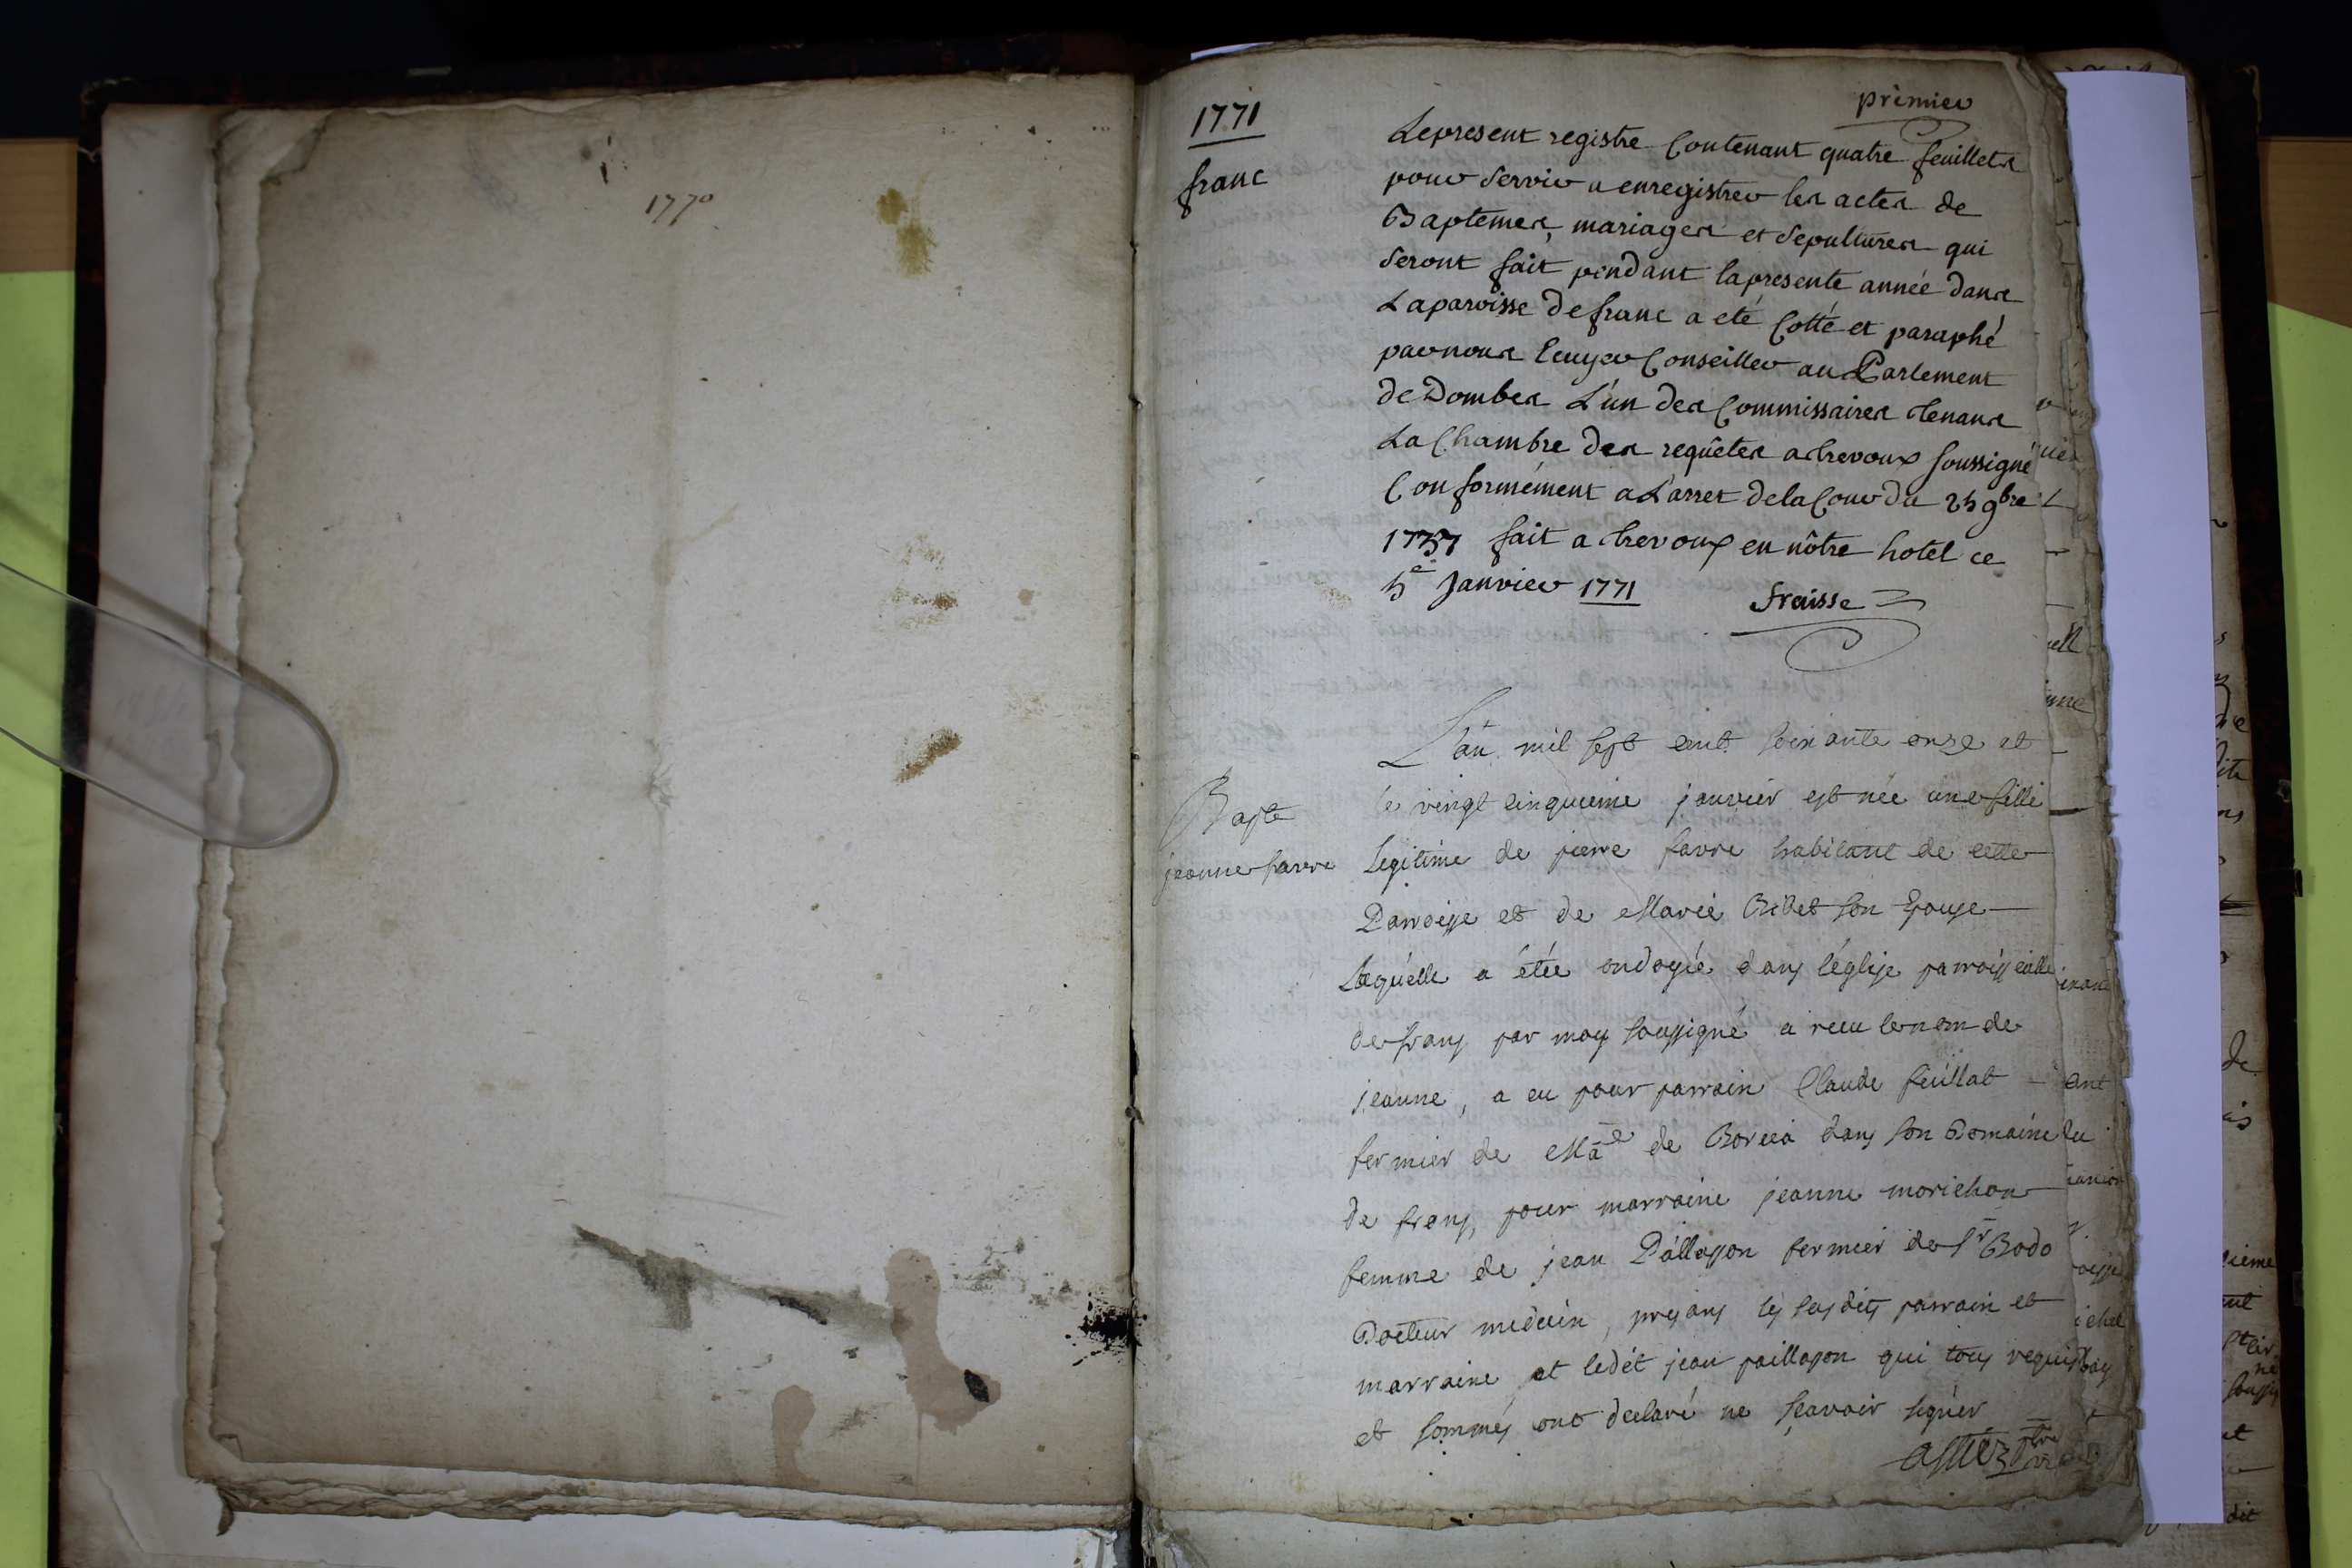 1770
1771
franc
premier
Le present registre Contenant quatre feuillets
pour servir a enregistrer les actes de
Baptemes, mariages et sepultures qui
seront fait pendant la presente année dans
La paroisse de franc a eté Cotté et paraphé
par nous Ecuyer Conseiller au Parlement
de Dombes L'un des Commissaires tenans
La Chambre des requêtes a trevoux soussigné
Conformément a L'arret de la Cour du 25 9bre
1737 fait a trevoux en nôtre hotel ce
5e Janvier 1771
fraisse
L'an mil sept cent soixante onze et
le vingt cinquieme janvier est née une fille
Bapte
jeanne favre
Legitime de pierre favre habitant de cette
Parroisse et de Marie Bidet son Epouse
Laquelle a étée ondoyée dans l'église parroissialle
de frans par moy soussigné a reçu le nom de
jeanne, a eu pour parrain Claude feuillat
fermier de Mae de dans son Domaine
de frans, pour marraine jeanne morichon
femme de jean Paillasson fermier de Sr Bodo
Docteur medecin, presans les susdits parrain et
marraine et ledit jean paillasson qui tous requis
et sommés ont declaré ne sçavoir signer
ptre